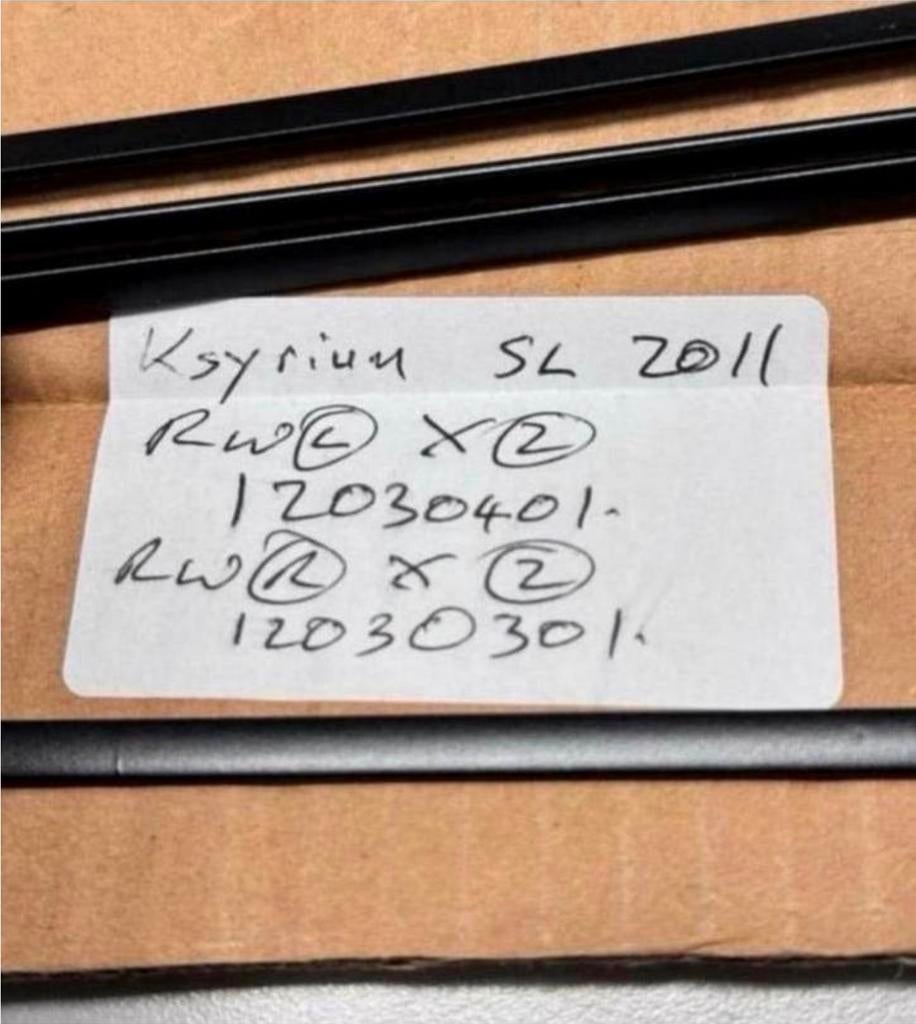 Ksyrium SL 2011
RW Ⓛ X ②
12030401.
RW Ⓡ X ②
12030301.